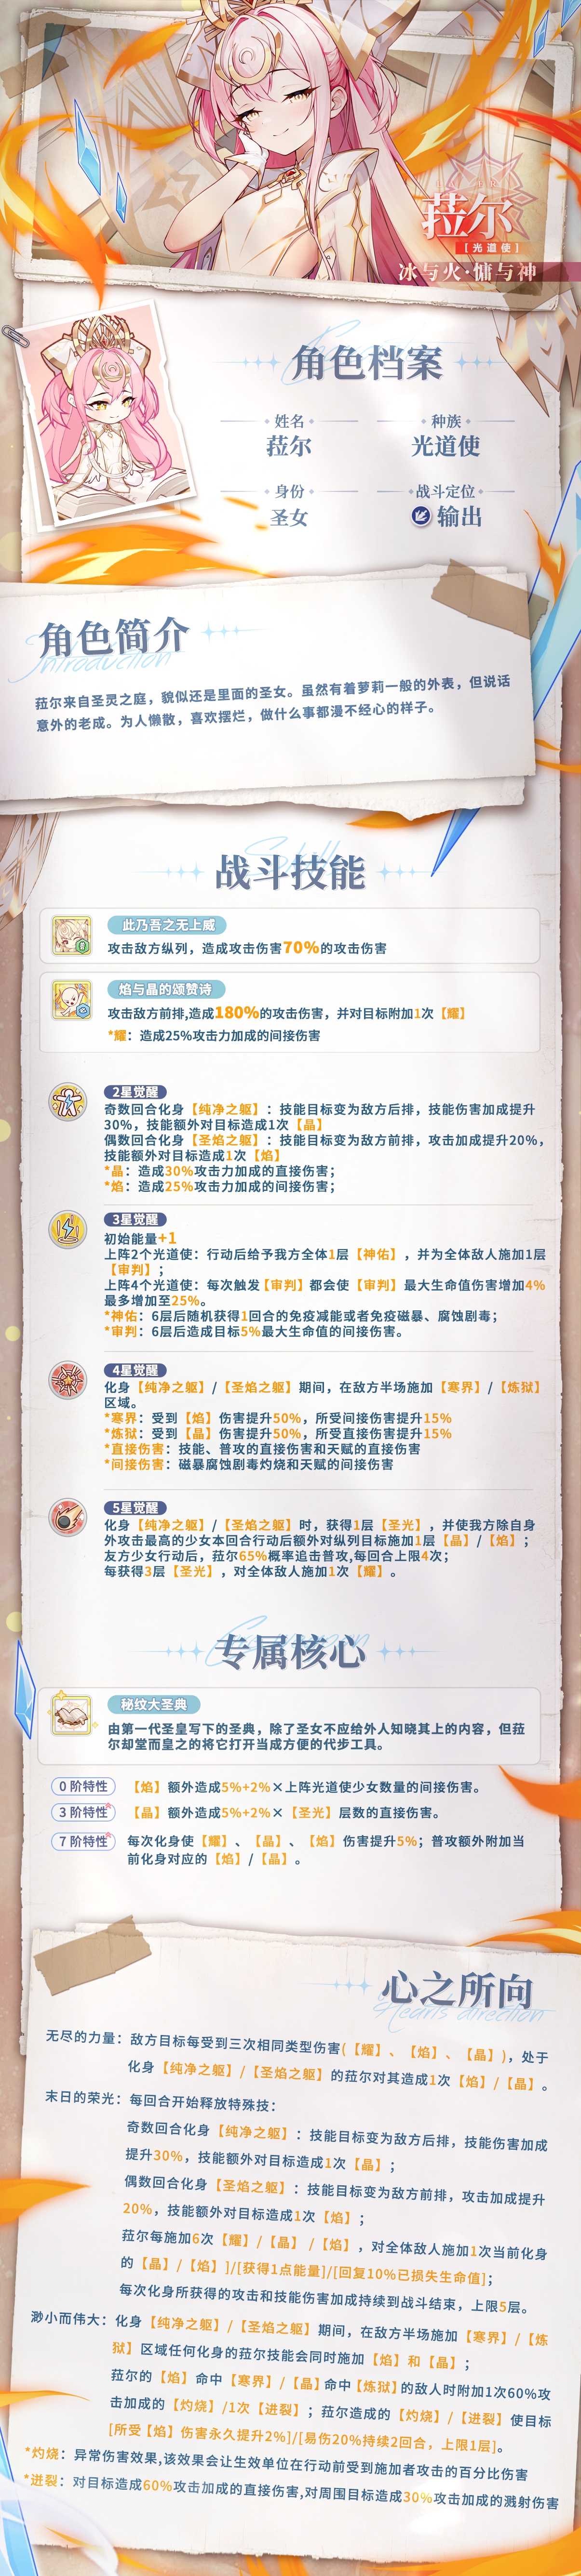 菈尔
[光道使]
冰与火·慵与神
角色档案
姓名
种族
菈尔
光道使
身份
战斗定位
圣女
输出
角色简介
Introduction
菈尔来自圣灵之庭，貌似还是里面的圣女。虽然有着萝莉一般的外表，但说话
意外的老成。为人懒散，喜欢摆烂，做什么事都漫不经心的样子。
战斗技能
此乃吾之无上威
攻击敌方纵列，造成攻击伤害70%的攻击伤害
焰与晶的颂赞诗
攻击敌方前排,造成180%的攻击伤害，并对目标附加1次【耀】
*耀：造成25%攻击力加成的间接伤害
2星觉醒
奇数回合化身【纯净之躯】：技能目标变为敌方后排，技能伤害加成提升
30%，技能额外对目标造成1次【晶】
偶数回合化身【圣焰之躯】：技能目标变为敌方前排，攻击加成提升20%，
技能额外对目标造成1次【焰】
*晶：造成30%攻击力加成的直接伤害；
*焰：造成25%攻击力加成的间接伤害；
3星觉醒
初始能量+1
上阵2个光道使：行动后给予我方全体1层【神佑】，并为全体敌人施加1层
【审判】；
上阵4个光道使：每次触发【审判】都会使【审判】最大生命值伤害增加4%
最多增加至25%。
*神佑：6层后随机获得1回合的免疫减能或者免疫磁暴、腐蚀剧毒；
*审判：6层后造成目标5%最大生命值的间接伤害。
4星觉醒
化身【纯净之躯】/【圣焰之躯】期间，在敌方半场施加【寒界】/【炼狱】
区域。
*寒界：受到【焰】伤害提升50%，所受间接伤害提升15%
*炼狱：受到【晶】伤害提升50%，所受直接伤害提升15%
*直接伤害：技能、普攻的直接伤害和天赋的直接伤害
*间接伤害：磁暴腐蚀剧毒灼烧和天赋的间接伤害
5星觉醒
化身【纯净之躯】/【圣焰之躯】时，获得1层【圣光】，并使我方除自身
外攻击最高的少女本回合行动后额外对纵列目标施加1层【晶】/【焰】；
友方少女行动后，菈尔65%概率追击普攻,每回合上限4次；
每获得3层【圣光】，对全体敌人施加1次【耀】。
专属核心
秘纹大圣典
由第一代圣皇写下的圣典，除了圣女不应给外人知晓其上的内容，但菈
尔却堂而皇之的将它打开当成方便的代步工具。
0 阶特性
【焰】额外造成5%+2%×上阵光道使少女数量的间接伤害。
3 阶特性
【晶】额外造成5%+2%×【圣光】层数的直接伤害。
7 阶特性
每次化身使【耀】、【晶】、【焰】伤害提升5%；普攻额外附加当
前化身对应的【焰】/【晶】。
心之所向
Hearts direction
无尽的力量：敌方目标每受到三次相同类型伤害(【耀】、【焰】、【晶】)，处于
化身【纯净之躯】/【圣焰之躯】的菈尔对其造成1次【焰】/【晶】。
末日的荣光：每回合开始释放特殊技：
奇数回合化身【纯净之躯】：技能目标变为敌方后排，技能伤害加成
提升30%，技能额外对目标造成1次【晶】；
偶数回合化身【圣焰之躯】：技能目标变为敌方前排，攻击加成提升
20%，技能额外对目标造成1次【焰】；
菈尔每施加6次【耀】/【晶】/【焰】，对全体敌人施加1次当前化身
的【晶】/【焰】]/[获得1点能量]/[回复10%已损失生命值]；
每次化身所获得的攻击和技能伤害加成持续到战斗结束，上限5层。
渺小而伟大：化身【纯净之躯】/【圣焰之躯】期间，在敌方半场施加【寒界】/【炼
狱】区域任何化身的菈尔技能会同时施加【焰】和【晶】；
菈尔的【焰】命中【寒界】/【晶】命中【炼狱】的敌人时附加1次60%攻
击加成的【灼烧】/1次【迸裂】；菈尔造成的【灼烧】/【迸裂】使目标
[所受【焰】伤害永久提升2%]/[易伤20%持续2回合，上限1层]。
*灼烧：异常伤害效果,该效果会让生效单位在行动前受到施加者攻击的百分比伤害
*迸裂：对目标造成60%攻击加成的直接伤害,对周围目标造成30%攻击加成的溅射伤害